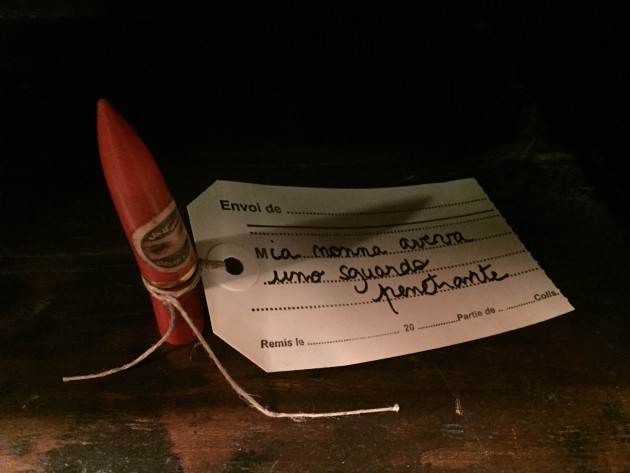 Envoi de
Mia nonna aveva
uno sguardo
penetrante
Remis le 20 Partie de Colis.